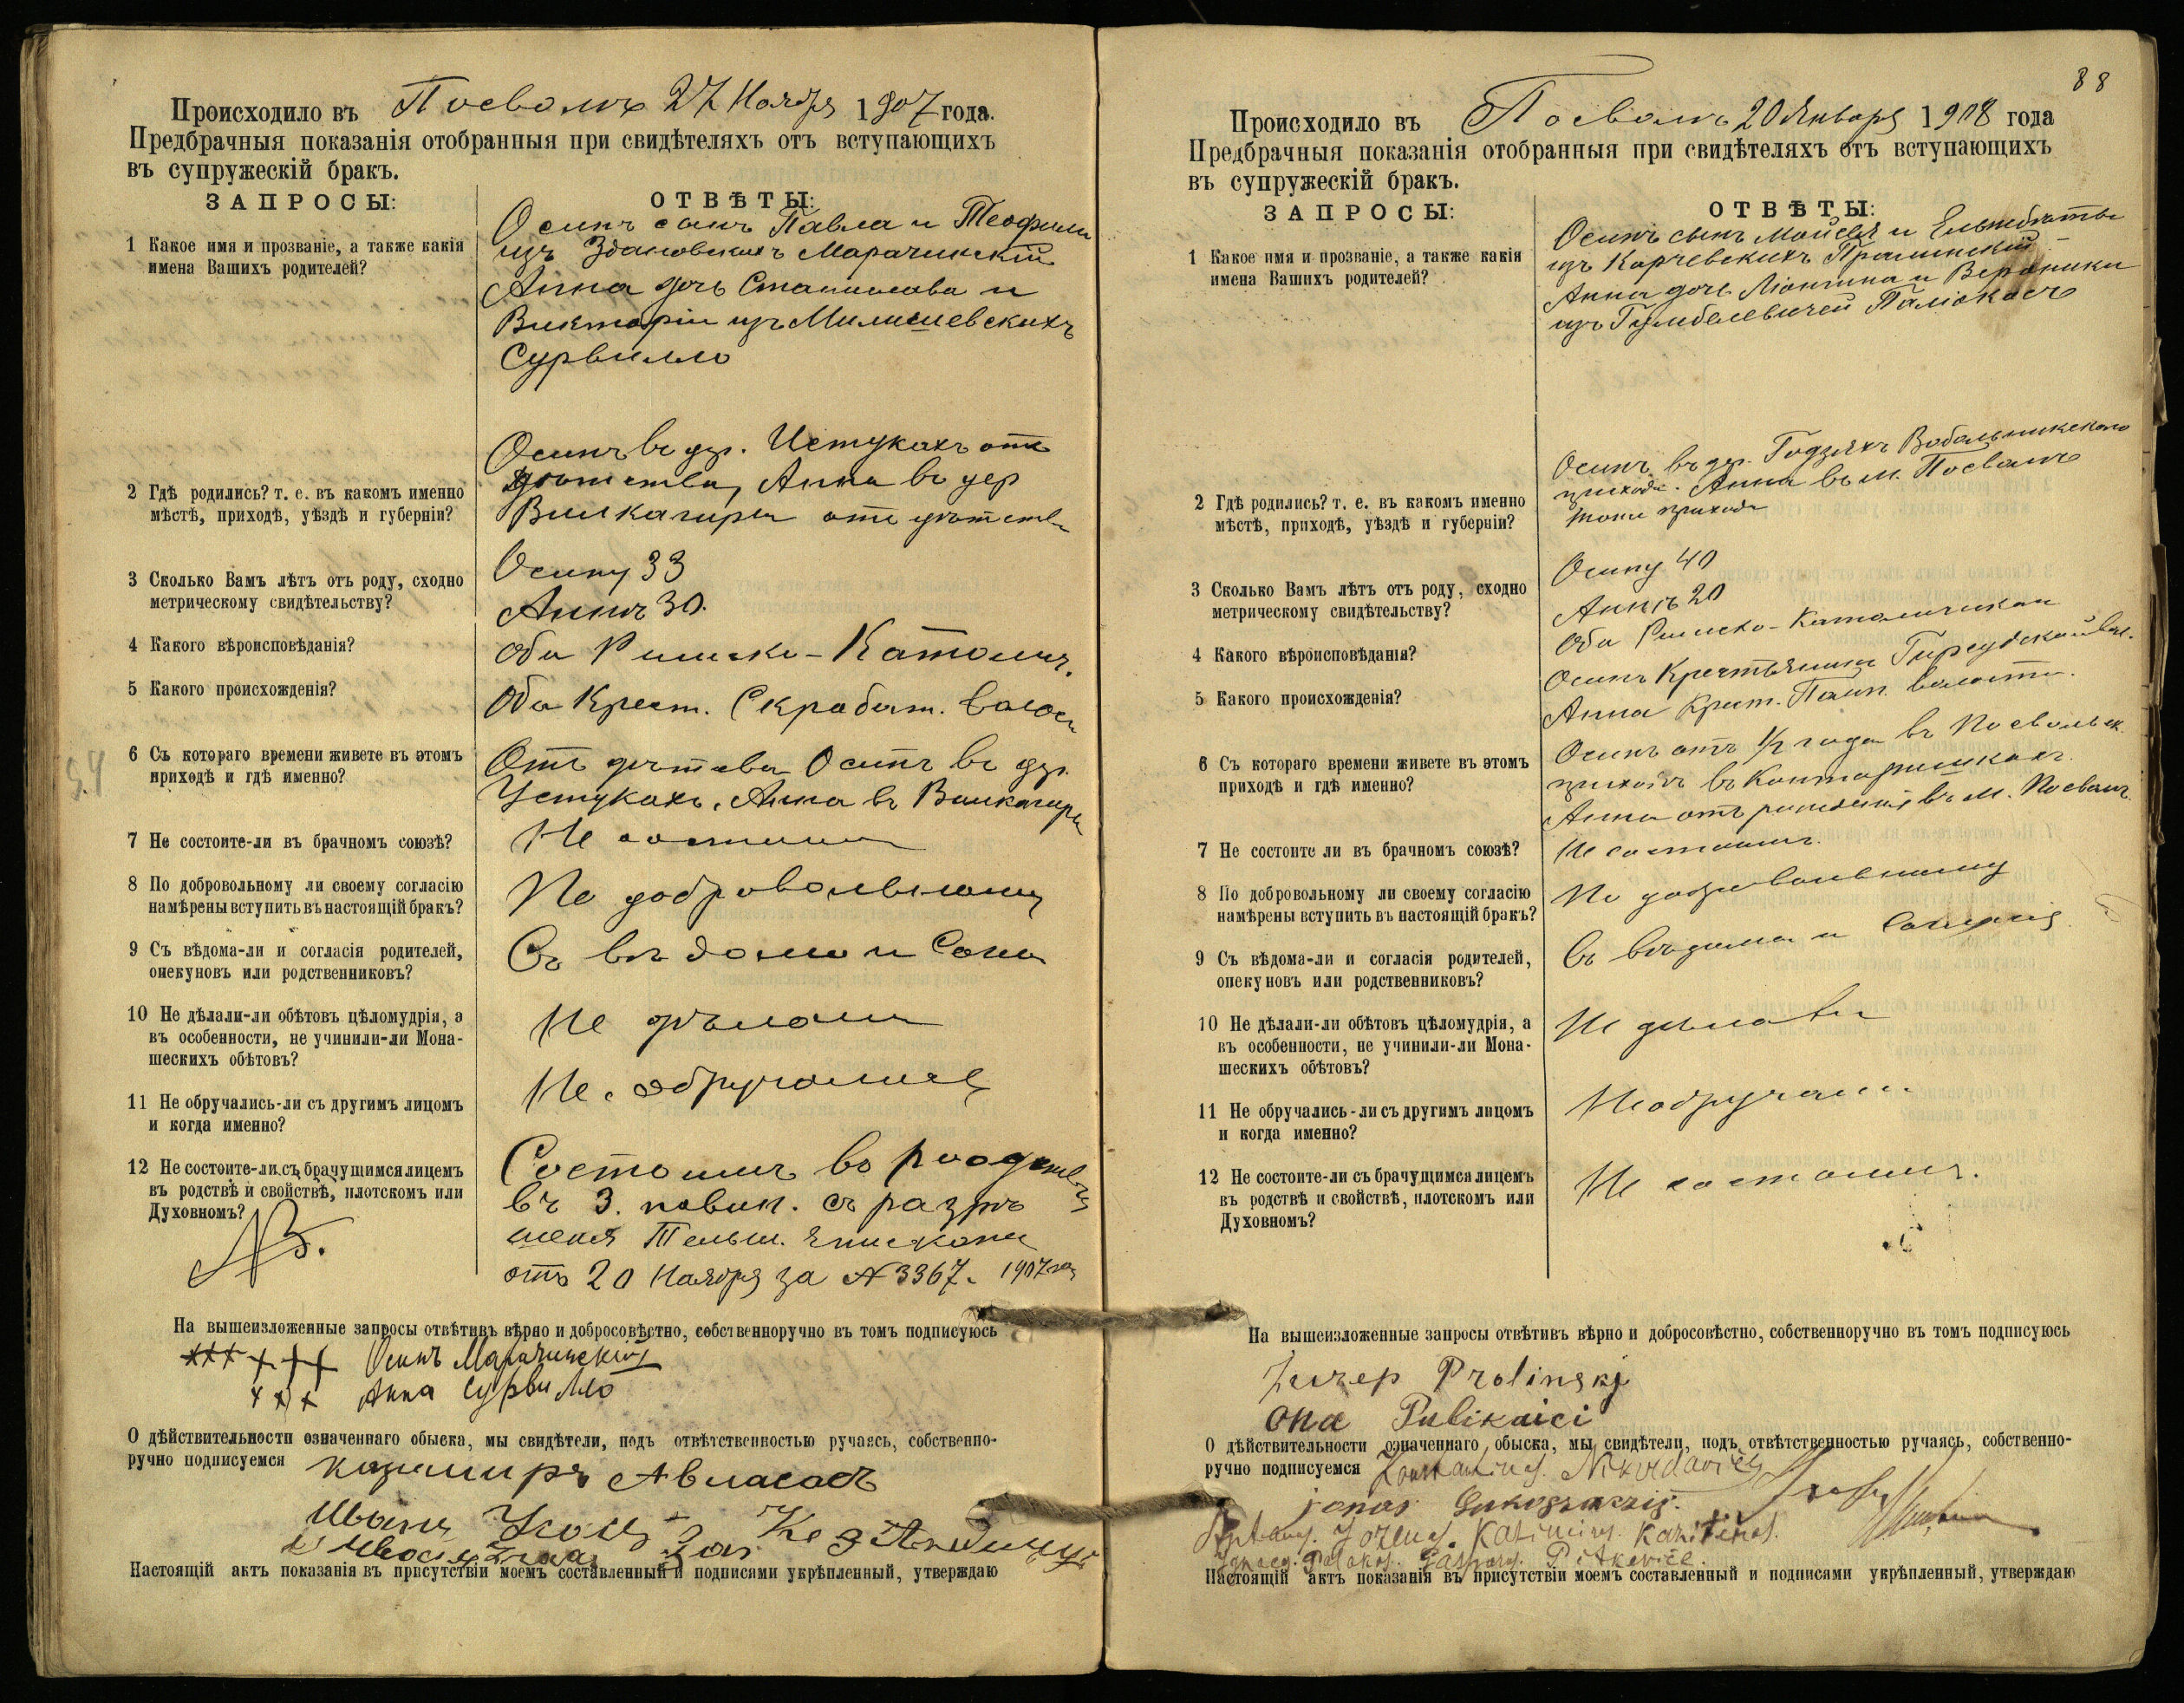 Происходило въ Посволѣ 27 Ноября 1907 года.
Предбрачныя показанія отобранныя при свидѣтеляхъ отъ вступающихъ
въ супружескій бракъ.
ЗАПРОСЫ:
ОТВѢТЫ:
1 Какое имя и прозваніе, а также какія
имена Вашихъ родителей?
Осипъ сынъ Павла и Теофили
изъ Здановскихъ Марачинскій
Анна дочь Станислава и
Викторіи изъ Милишевскихъ
Сурвилло
2 Гдѣ родились? т. е. въ какомъ именно
мѣстѣ, приходѣ, уѣздѣ и губерніи?
Осипъ въ дер. Истукахъ отъ
дѣтства, Анна въ дер
отъ дѣтства
3 Сколько Вамъ лѣтъ отъ роду, сходно
метрическому свидѣтельству?
Осипу 33
Аннѣ 30.
4 Какого вѣроисповѣданія?
Оба Римско-Католич.
5 Какого происхожденія?
Оба Крест. Скрабат. волос
6 Съ котораго времени живете въ этомъ
приходѣ и гдѣ именно?
Отъ дѣтства Осипъ въ дер.
Устукахъ, Анна въ
7 Не состоите-ли въ брачномъ союзѣ?
Не состоимъ
8 По добровольному ли своему согласію
намѣрены вступить въ настоящій бракъ?
По добровольному
9 Съ вѣдома-ли и согласія родителей,
опекуновъ или родственниковъ?
Съ вѣдома и Согл
10 Не дѣлали-ли обѣтовъ цѣломудрія, а
въ особенности, не учинили-ли Мона-
шескихъ обѣтовъ?
Не дѣлали
11 Не обручались-ли съ другимъ лицомъ
и когда именно?
Не обручались
12 Не состоите-ли съ брачущимся лицемъ
въ родствѣ и свойствѣ, плотскомъ или
Духовномъ?
Состоимъ въ родствѣ
въ 3. покол. съ разрѣ
шенія Тельш. Епископа
отъ 20 Ноября за № 3367. 1907
На вышеизложенные запросы отвѣтивъ вѣрно и добросовѣстно, собственноручно въ томъ подписуюсь
xxx +++ Осипъ Марачинскій
xxx Анна Сурвилло
О дѣйствительности означеннаго обыска, мы свидѣтели, подъ отвѣтственностью ручаясь, собственно-
ручно подписуемся
Казимиръ Авласовъ
Иванъ
Настоящій актъ показанія въ присутствіи моемъ составленный и подписями укрѣпленный, утверждаю
88
Происходило въ Посволѣ 20 Января 1908 года
Предбрачныя показанія отобранныя при свидѣтеляхъ отъ вступающихъ
въ супружескій бракъ.
ЗАПРОСЫ:
ОТВѢТЫ:
1 Какое имя и прозваніе, а также какія
имена Вашихъ родителей?
Осипъ сынъ Моисея и Ельжбѣты
изъ Карчевскихъ Пролинскій
Анна дочь и Вероники
изъ Гумбелевичей
2 Гдѣ родились? т. е. въ какомъ именно
мѣстѣ, приходѣ, уѣздѣ и губерніи?
Осипъ въ дер. Вобольникскаго
прихода. Анна въ м. Посволѣ
того прихода
3 Сколько Вамъ лѣтъ отъ роду, сходно
метрическому свидѣтельству?
Осипу 40
Аннѣ 20
4 Какого вѣроисповѣданія?
Оба Римско-Католическаго
5 Какого происхожденія?
Осипъ Крестьянинъ Гирсудской вол.
Анна Крест. волости.
6 Съ котораго времени живете въ этомъ
приходѣ и гдѣ именно?
Осипъ отъ 1/2 года въ Посвольск.
приходѣ въ
Анна отъ рожденія въ м. Посволѣ
7 Не состоите ли въ брачномъ союзѣ?
Не состоимъ.
8 По добровольному ли своему согласію
намѣрены вступить въ настоящій бракъ?
По добровольному
9 Съ вѣдома-ли и согласія родителей,
опекуновъ или родственниковъ?
Съ вѣдома и Согласія
10 Не дѣлали-ли обѣтовъ цѣломудрія, а
въ особенности, не учинили-ли Мона-
шескихъ обѣтовъ?
Не дѣлали
11 Не обручались-ли съ другимъ лицомъ
и когда именно?
Не обручали
12 Не состоите-ли съ брачущимся лицемъ
въ родствѣ и свойствѣ, плотскомъ или
Духовномъ?
Не состоимъ.
На вышеизложенные запросы отвѣтивъ вѣрно и добросовѣстно, собственноручно въ томъ подписуюсь
Juzep Prolinskj
Ona Pulikaici
О дѣйствительности означеннаго обыска, мы свидѣтели, подъ отвѣтственностью ручаясь, собственно-
ручно подписуемся
jonas
Настоящій актъ показанія въ присутствіи моемъ составленный и подписями укрѣпленный, утверждаю